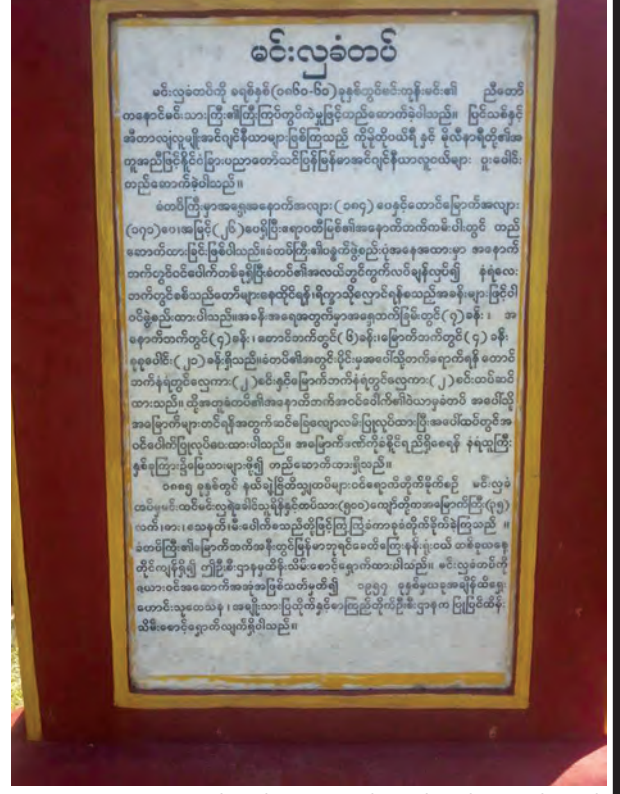 မင်းလှခံတပ်
မင်းလှခံတပ်ကို ခရစ်နှစ်(၁၈၆၀-၆၁)ခုနှစ်တွင်မင်းတုန်းမင်း၏ ညီတော်
ကနောင်မင်းသားကြီး၏ကြီးကြပ်ကွပ်ကဲမှုဖြင့်တည်ဆောက်ခဲ့ပါသည်။ ပြင်သစ်နှင့်
အီတာလျံလူမျိုးအင်ဂျင်နီယာများဖြစ်ကြသည့် ကိုမိုတိုပယ်ရီ နှင့် မိုလီနာရီတို့၏အ
ကူအညီဖြင့်နိုင်ငံခြားပညာတော်သင်ပြန်မြန်မာအင်ဂျင်နီယာလူငယ်များ ပူးပေါင်း
တည်ဆောက်ခဲ့ပါသည်။
ခံတပ်ကြီးမှာအရှေ့အနောက်အလျား(၁၈၄) ပေနှင့်တောင်မြောက်အလျား
(၁၇၁)ပေ၊အမြင့်(၂၆)ပေရှိပြီးဧရာဝတီမြစ်၏အနောက်ဘက်ကမ်းပါးတွင် တည်
ဆောက်ထားခြင်းဖြစ်ပါသည်။ခံတပ်ကြီး၏ပန္နက်ဖွဲ့စည်းပုံအနေအထားမှာ အနောက်
ဘက်တွင်ဝင်ပေါက်တစ်ခုရှိပြီးခံတပ်၏အလယ်တွင်ကွက်လပ်ချန်လှပ်၍ နံရံလေး
ဘက်တွင်စစ်သည်တော်များနေထိုင်ရန်၊ရိက္ခာသိုလှောင်ရန်စသည့်အခန်းများဖြင့်ပါ
ဝင်ဖွဲ့စည်းထားပါသည်။အခန်းအရေအတွက်မှာအရှေ့ဘက်ခြမ်းတွင်(၇)ခန်း၊ အ
နောက်ဘက်တွင်(၄)ခန်း၊ တောင်ဘက်တွင်(၆)ခန်း၊မြောက်ဘက်တွင်(၄) ခန်း
စုစုပေါင်း(၂၁)ခန်းရှိသည်။ခံတပ်၏အတွင်းပိုင်းမှအပေါ်သို့တက်ရောက်ရန် တောင်
ဘက်နံရံတွင်လှေကား(၂)စင်းနှင့်မြောက်ဘက်နံရံတွင်လှေကား(၂)စင်းတပ်ဆင်
ထားသည်။ထို့အတူခံတပ်၏အနောက်ဘက်အဝင်ပေါက်၏ဝဲယာမှခံတပ် အပေါ်သို့
အမြောက်များတင်ရန်အတွက်ဆင်ခြေလျောလမ်းပြုလုပ်ထားပြီးအပေါ်ထပ်တွင်အ
ဝင်ပေါက်ပြုလုပ်ပေးထားပါသည်။ အမြောက်ဒဏ်ကိုခံနိုင်ရည်ရှိစေရန် နံရံထူကြီး
နှစ်ခုကြား၌မြေသားများဖို့၍ တည်ဆောက်ထားရှိသည်။
၁၈၈၅ ခုနှစ်တွင် နယ်ချဲ့ဗြိတိသျှတပ်များဝင်ရောက်တိုက်ခိုက်စဉ် မင်းလှခံ
တပ်မှမင်းထင်မင်းလှရဲခေါင်သူရိန်နှင့်တပ်သား(၅၀၀)ကျော်တို့ကအမြောက်ကြီး(၃၅)
လက်၊ဓား၊သေနတ်၊မီးပေါက်စသည်တို့ဖြင့်ကြံ့ကြံ့ခံကာခုခံတိုက်ခိုက်ခဲ့ကြသည် ။
ခံတပ်ကြီး၏မြောက်ဘက်အနီးတွင်မြန်မာဘုရင်ခေတ်ကြေးနန်းရုံးငယ် တစ်ခုယနေ့
တိုင်ကျန်ရှိ၍ ဤဦးစီးဌာနမှထိန်းသိမ်းစောင့်ရှောက်ထားပါသည်။ မင်းလှခံတပ်ကို
ရှေးဟောင်းသုတေသန ၊ အမျိုးသားပြတိုက်နှင့်စာကြည့်တိုက်ဦးစီးဌာနက ပြုပြင်ထိန်း
သိမ်းစောင့်ရှောက်လျက်ရှိပါသည်။